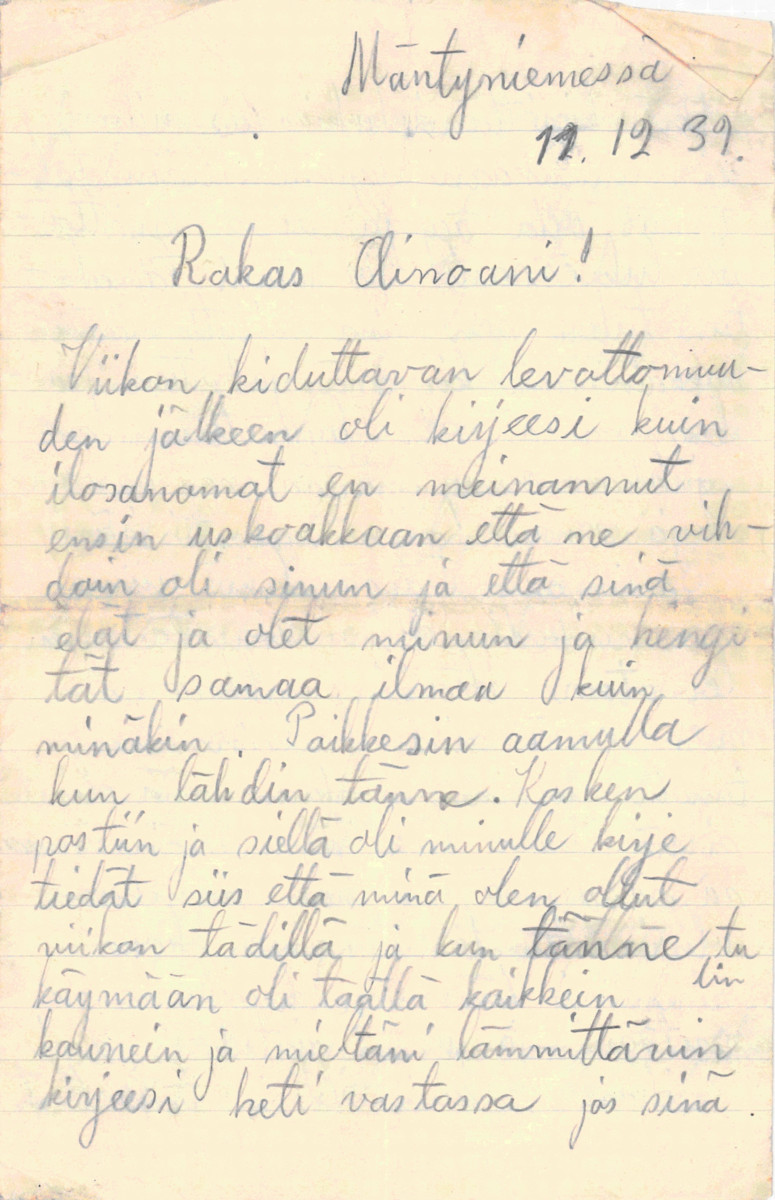 Mäntyniemessä
11. 12 39.
Rakas Ainoani!
Viikon kiduttavan levottomuu-
den jälkeen oli kirjeesi kuin
ilosanomat en meinannut
ensin uskoakkaan että ne vih-
doin oli sinun ja että sinä
elät ja olet minun ja hengi
tät samaa ilmaa kuin
minäkin. Poikkesin aamulla
kun lähdin tänne. Kosken
postiin ja siellä oli minulle kirje
tiedät siis että minä olen ollut
viikon tädillä ja kun tänne tu
lin
käymään oli täällä kaikkein
kaunein ja mieltäni lämmittävin
kirjeesi heti vastassa jos sinä